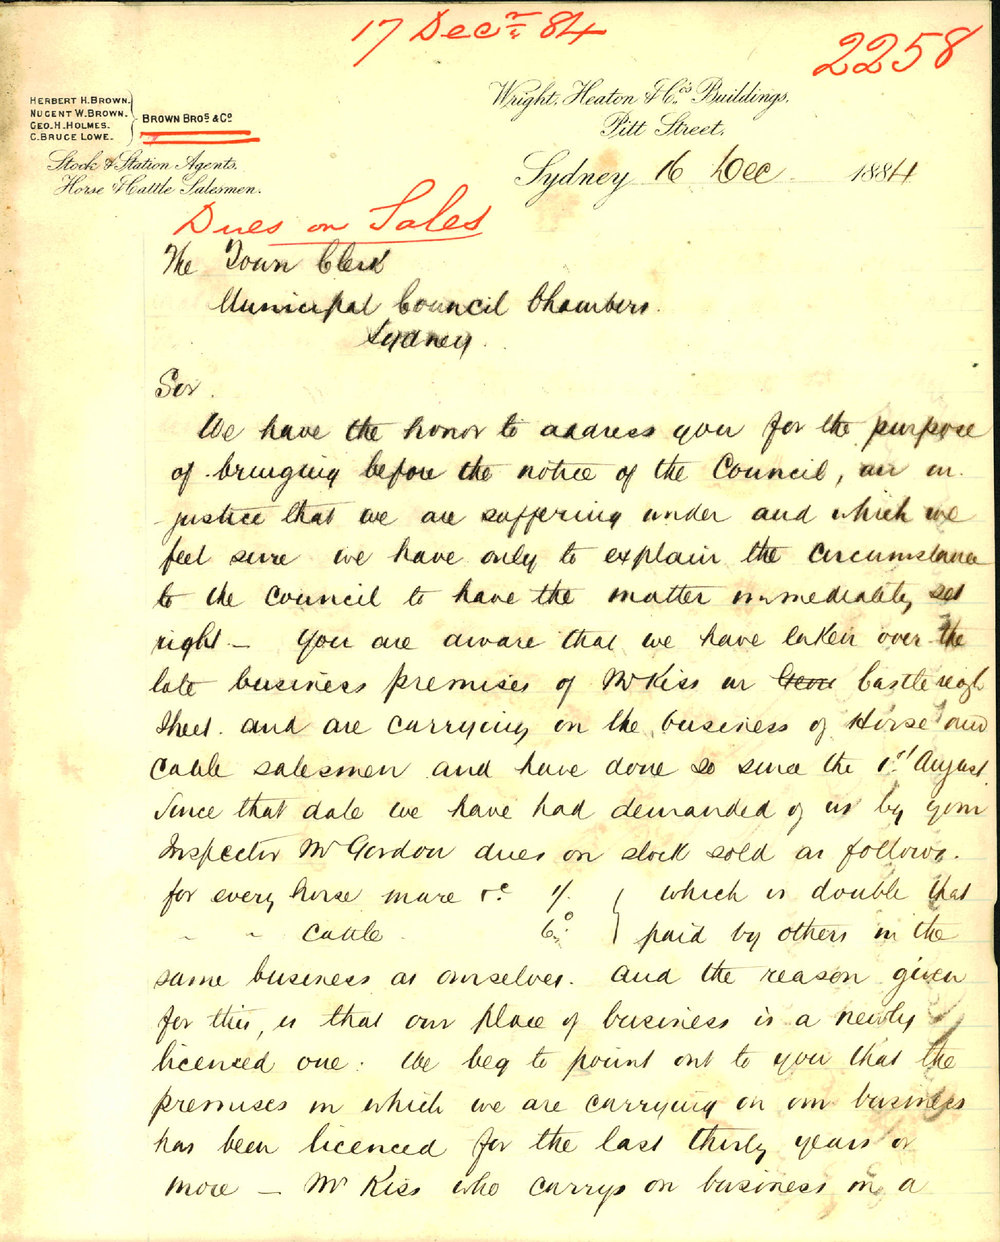 17 Decr 84
2258
HERBERT H. BROWN.
NUGENT W. BROWN.
GEO. H. HOLMES.
C. BRUCE LOWE.
BROWN BROS & CO
Stock & Station Agents.
Horse & Cattle Salesmen.
Wright, Heaton & Co's Buildings.
Pitt Street.
Sydney 16 Dec 1884
Dues on Sales
The Town Clerk
Municipal Council Chambers.
Sydney.
Sir.
We have the honor to address you for the purpose
of bringing before the notice of the Council, an in
justice that we are suffering under and which we
feel sure we have only to explain the circumstance
to the Council to have the matter immediately set
right - You are aware that we have taken over the
late business premises of Mr Kiss in Castlereagh
Street. and are carrying on the business of Horse and
Cattle salesmen and have done so since the 1st August.
Since that date we have had demanded of us by your
Inspector Mr Gordon dues on stock sold as follows.
for every horse mare &c 1/. } which is double that
" " cattle 6d. } paid by others in the
same business as ourselves. and the reason given
for this, is that our place of business is a newly
licenced one. We beg to point out to you that the
premises in which we are carrying on our business
has been licenced for the last thirty years or
more - Mr Kiss who carrys on business in a